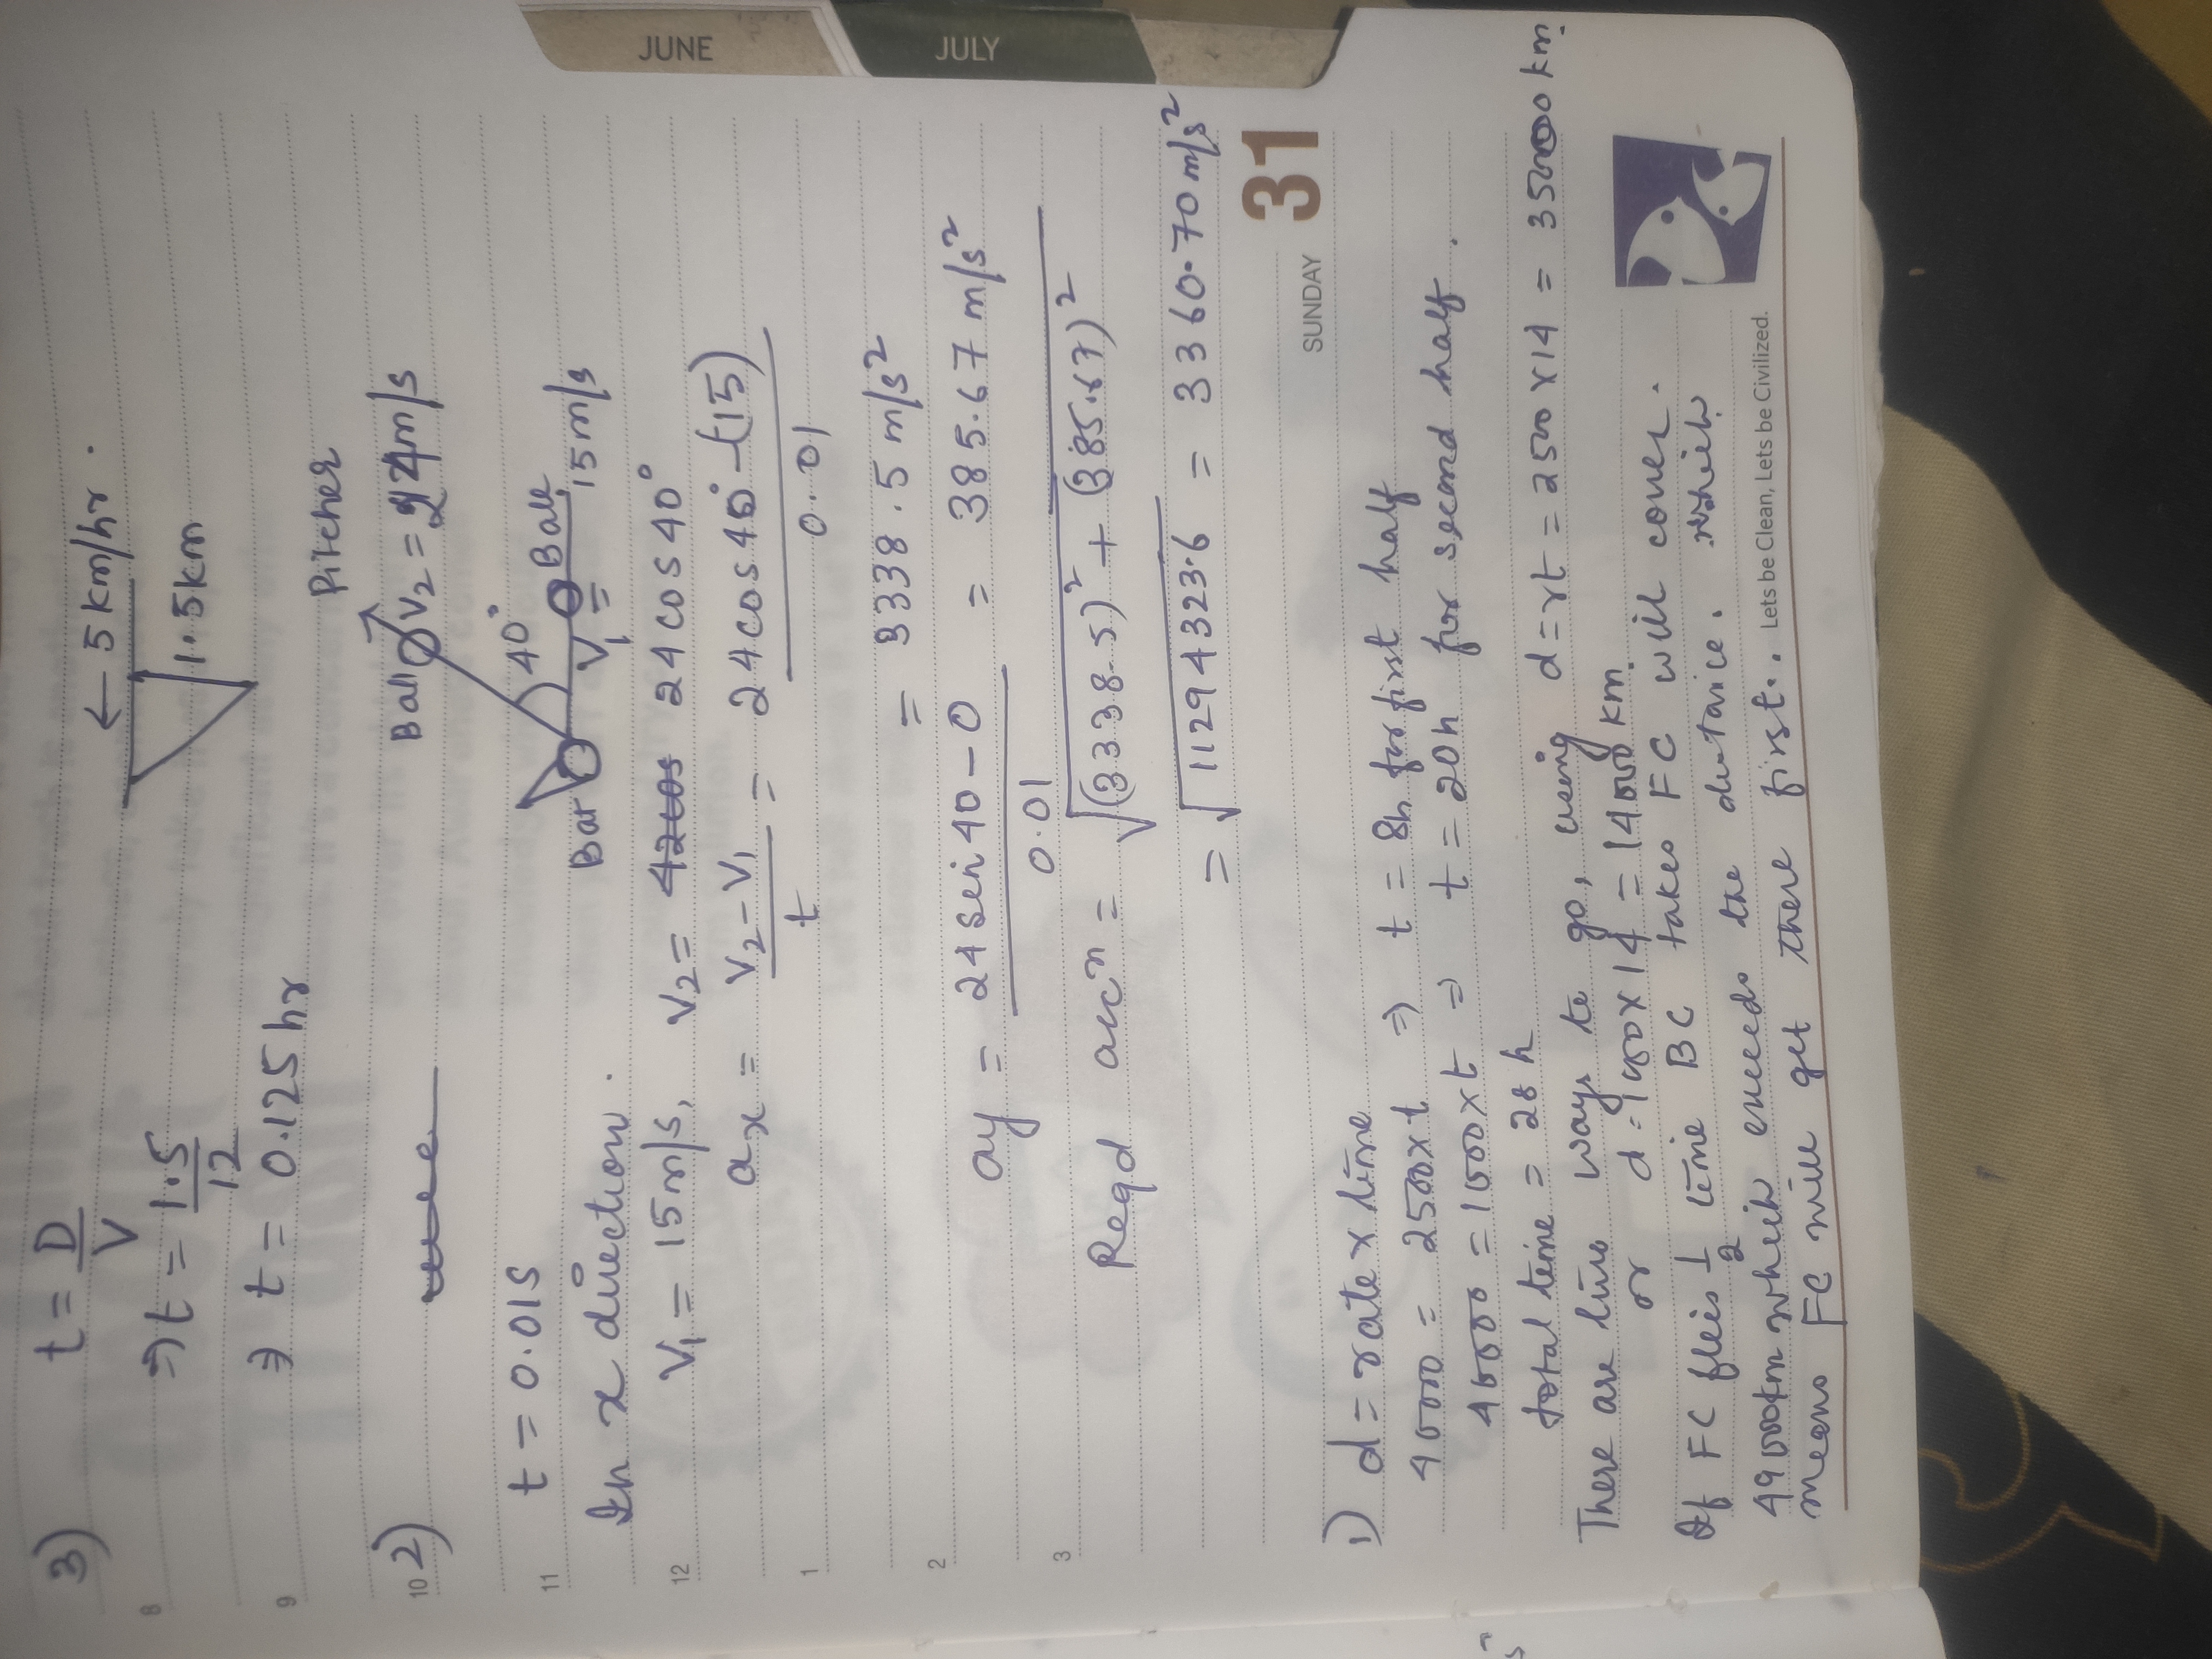 JUNE
JULY
3) t = D/V
← 5 km/hr.
8
⇒ t = 1.5/12
1.5 km
9
⇒ t = 0.125 hr
Pitcher
10 2)
Ball V₂ = 24 m/s
11
t = 0.01s
40°
Bat
V₁ = 15 m/s
Ball
In x direction.
12
V₁ = 15 m/s, V₂ = 24 cos 40°
ax = V₂ - V₁ / t = 24 cos 40° - (15) / 0.01
1
= 3338.5 m/s²
2
ay = 24 sin 40 - 0 / 0.01 = 385.67 m/s²
3
Reqd accⁿ = √(3338.5)² + (385.67)²
= √11294323.6 = 3360.70 m/s²
SUNDAY 31
1) d = rate x time
40000 = 2500 x t ⇒ t = 8h for first half
40000 = 1000 x t ⇒ t = 20h for second half.
total time = 28 h
There are two ways to go, using d = rt = 2500 x 14 = 35000 km
or d = 1000 x 14 = 14000 km
If FC flies 1/2 time BC takes FC will cover.
49000km which exceeds the distance. which
means FC will get there first..
Lets be Clean, Lets be Civilized.